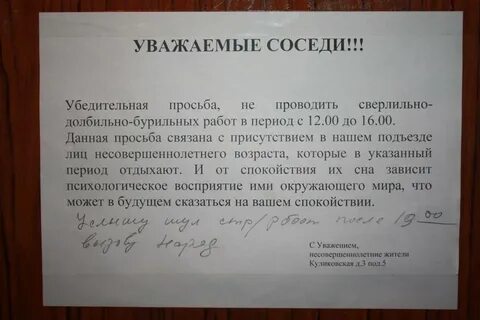 УВАЖАЕМЫЕ СОСЕДИ!!!
Убедительная просьба, не проводить сверлильно-
долбильно-бурильных работ в период с 12.00 до 16.00.
Данная просьба связана с присутствием в нашем подъезде
лиц несовершеннолетнего возраста, которые в указанный
период отдыхают. И от спокойствия их сна зависит
психологическое восприятие ими окружающего мира, что
может в будущем сказаться на вашем спокойствии.
Услышу шум стр/работ после 19 00
вызову наряд
С Уважением,
несовершеннолетние жители
Куликовская д.3 под.5